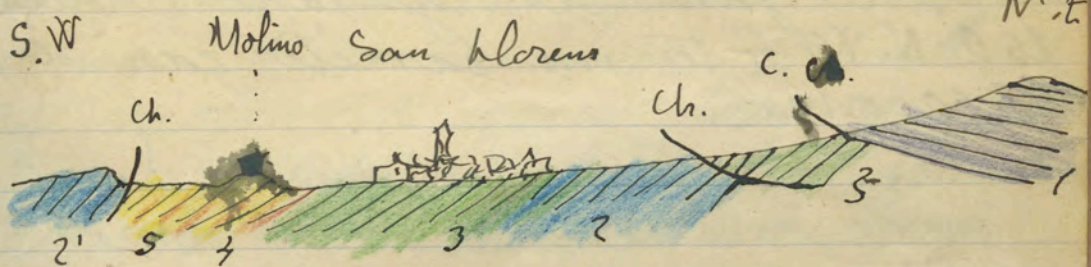 S.W Molino San Llorens N.E
Ch. Ch. C. Ch.
2' 5 4 3 2 3 1